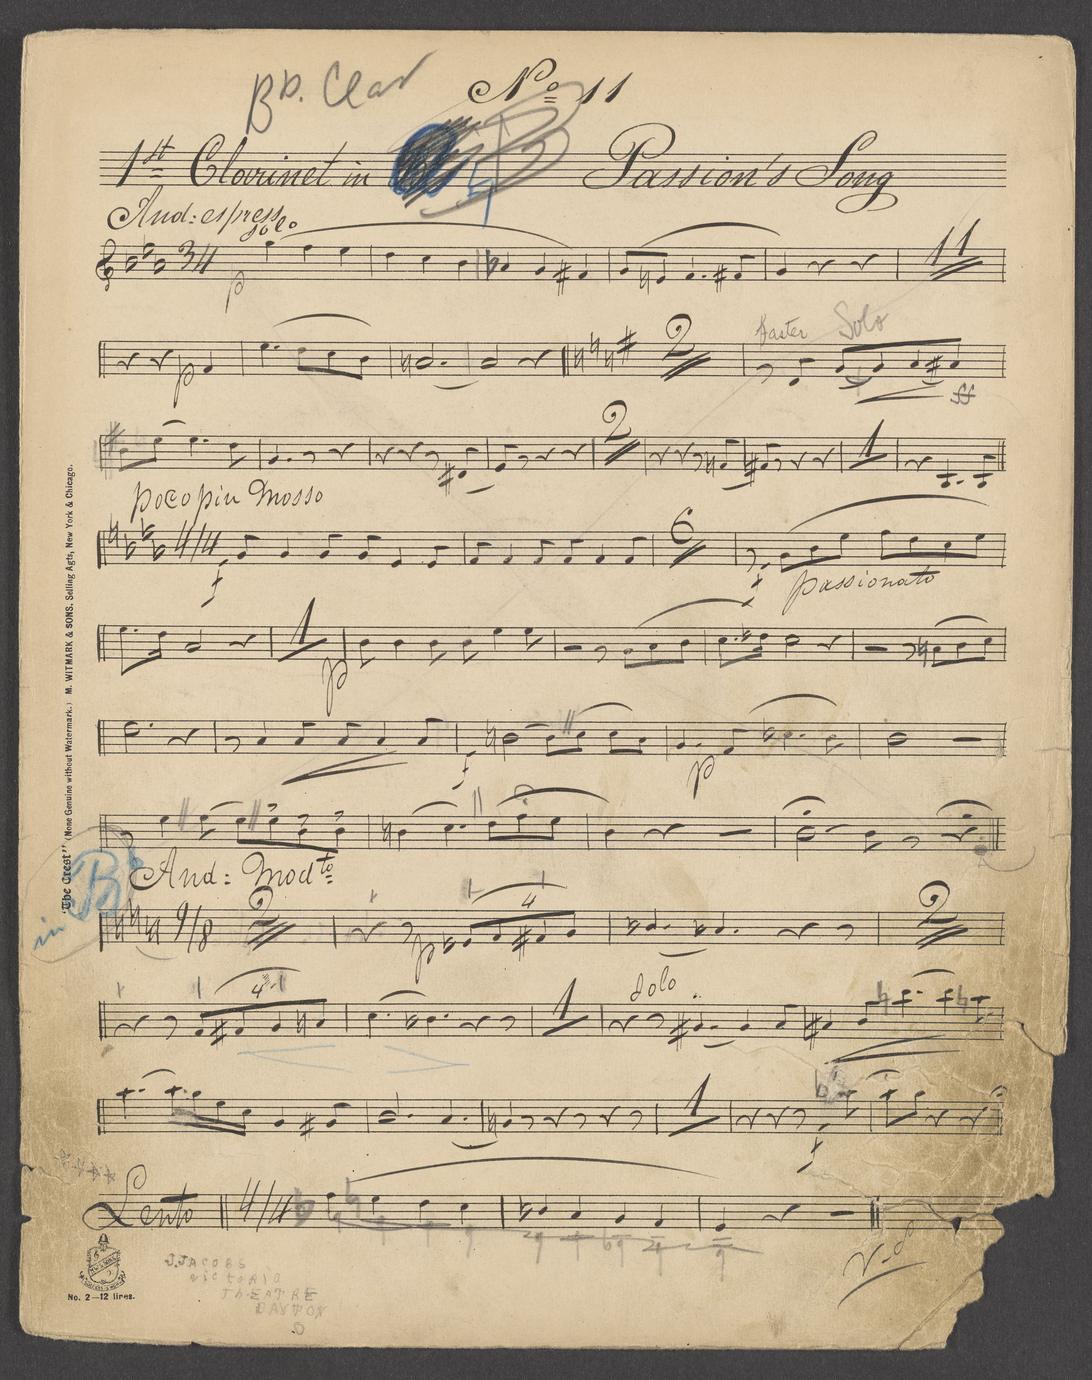 Bb. Clar
No 11
1st Clarinet in B Passion's Song
And: espress.
solo
3/4
p
11
p
2
faster Solo
ff
2
1
poco piu Mosso
4/4
f
6
f
passionato
1
p
f
p
And: Modto
in B
9/8
2
p
4
2
4
1
Solo
1
f
Lento
4/4
V.S.
J.JACOBS
VICTORIA
THEATRE
DAYTON
O
No. 2—12 lines.
"The Crest" (None Genuine without Watermark.) M. WITMARK & SONS, Selling Agts, New York & Chicago.